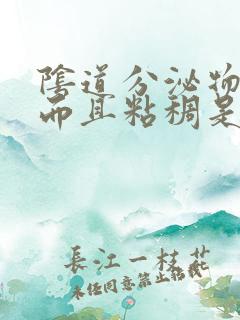 陰道分泌物
而且粘稠是
長江一枝花
未经同意禁止搬载